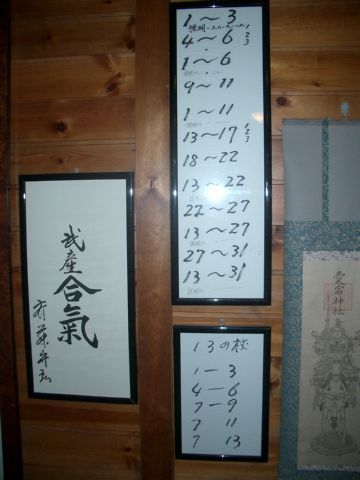 武産合氣
斉藤守弘
1〜3
4〜6 1 2 3
1〜6
9〜11
1〜11
13〜17 1 2 3
18〜22
13〜22
22〜27
13〜27
27〜31
13〜31
13の杖
1―3
4―6
7―9
7 11
7 13
愛宕神社